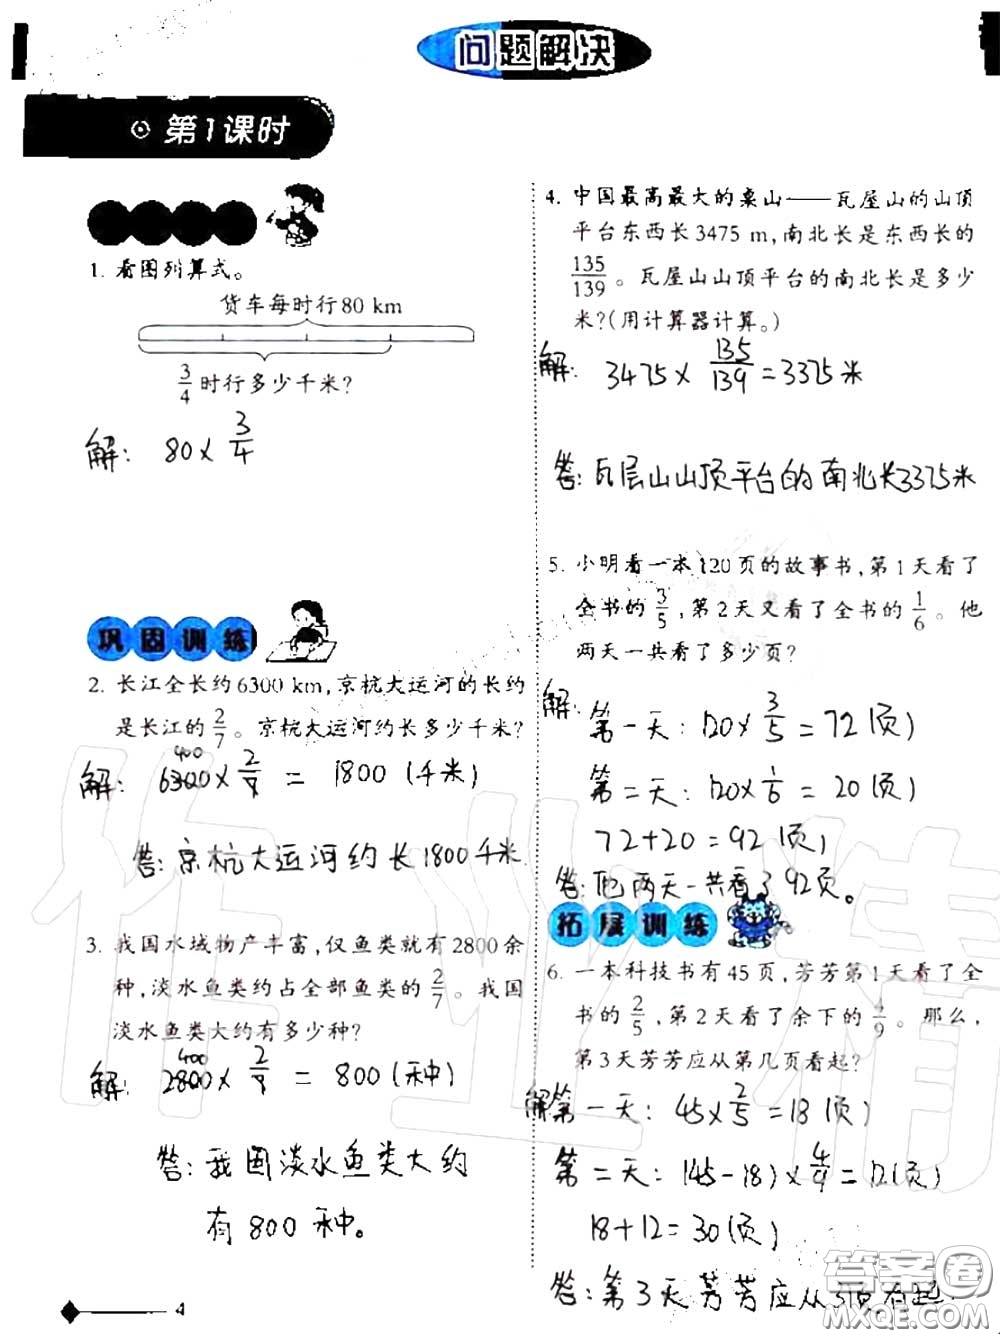 问题解决
第1课时
1. 看图列算式。
货车每时行80 km
3/4时行多少千米?
解: 80×3/4
巩固训练
2. 长江全长约6300 km,京杭大运河的长约
是长江的2/7。京杭大运河约长多少千米?
900
解: 6300×2/7 = 1800 (千米)
答: 京杭大运河约长1800千米
3. 我国水域物产丰富,仅鱼类就有2800余
种,淡水鱼类约占全部鱼类的2/7。我国
淡水鱼类大约有多少种?
400
解: 2800×2/7 = 800 (种)
答: 我国淡水鱼类大约
有800种。
4
4. 中国最高最大的桌山——瓦屋山的山顶
平台东西长3475 m,南北长是东西长的
135/139。瓦屋山山顶平台的南北长是多少
米?(用计算器计算。)
解: 3475×135/139=3375米
答: 瓦层山山顶平台的南北长3375米
5. 小明看一本120页的故事书,第1天看了
全书的3/5,第2天又看了全书的1/6。他
两天一共看了多少页?
解: 第一天: 120×3/5=72(页)
第二天: 120×1/6=20(页)
72+20=92(页)
答: 他两天一共看了92页。
拓展训练
6. 一本科技书有45页,芳芳第1天看了全
书的2/5,第2天看了余下的4/9。那么,
第3天芳芳应从第几页看起?
解第一天: 45×2/5=18(页)
第二天: (45-18)×4/9=12(页)
18+12=30(页)
答: 第3天芳芳应从31页看起
作业精
答案圈